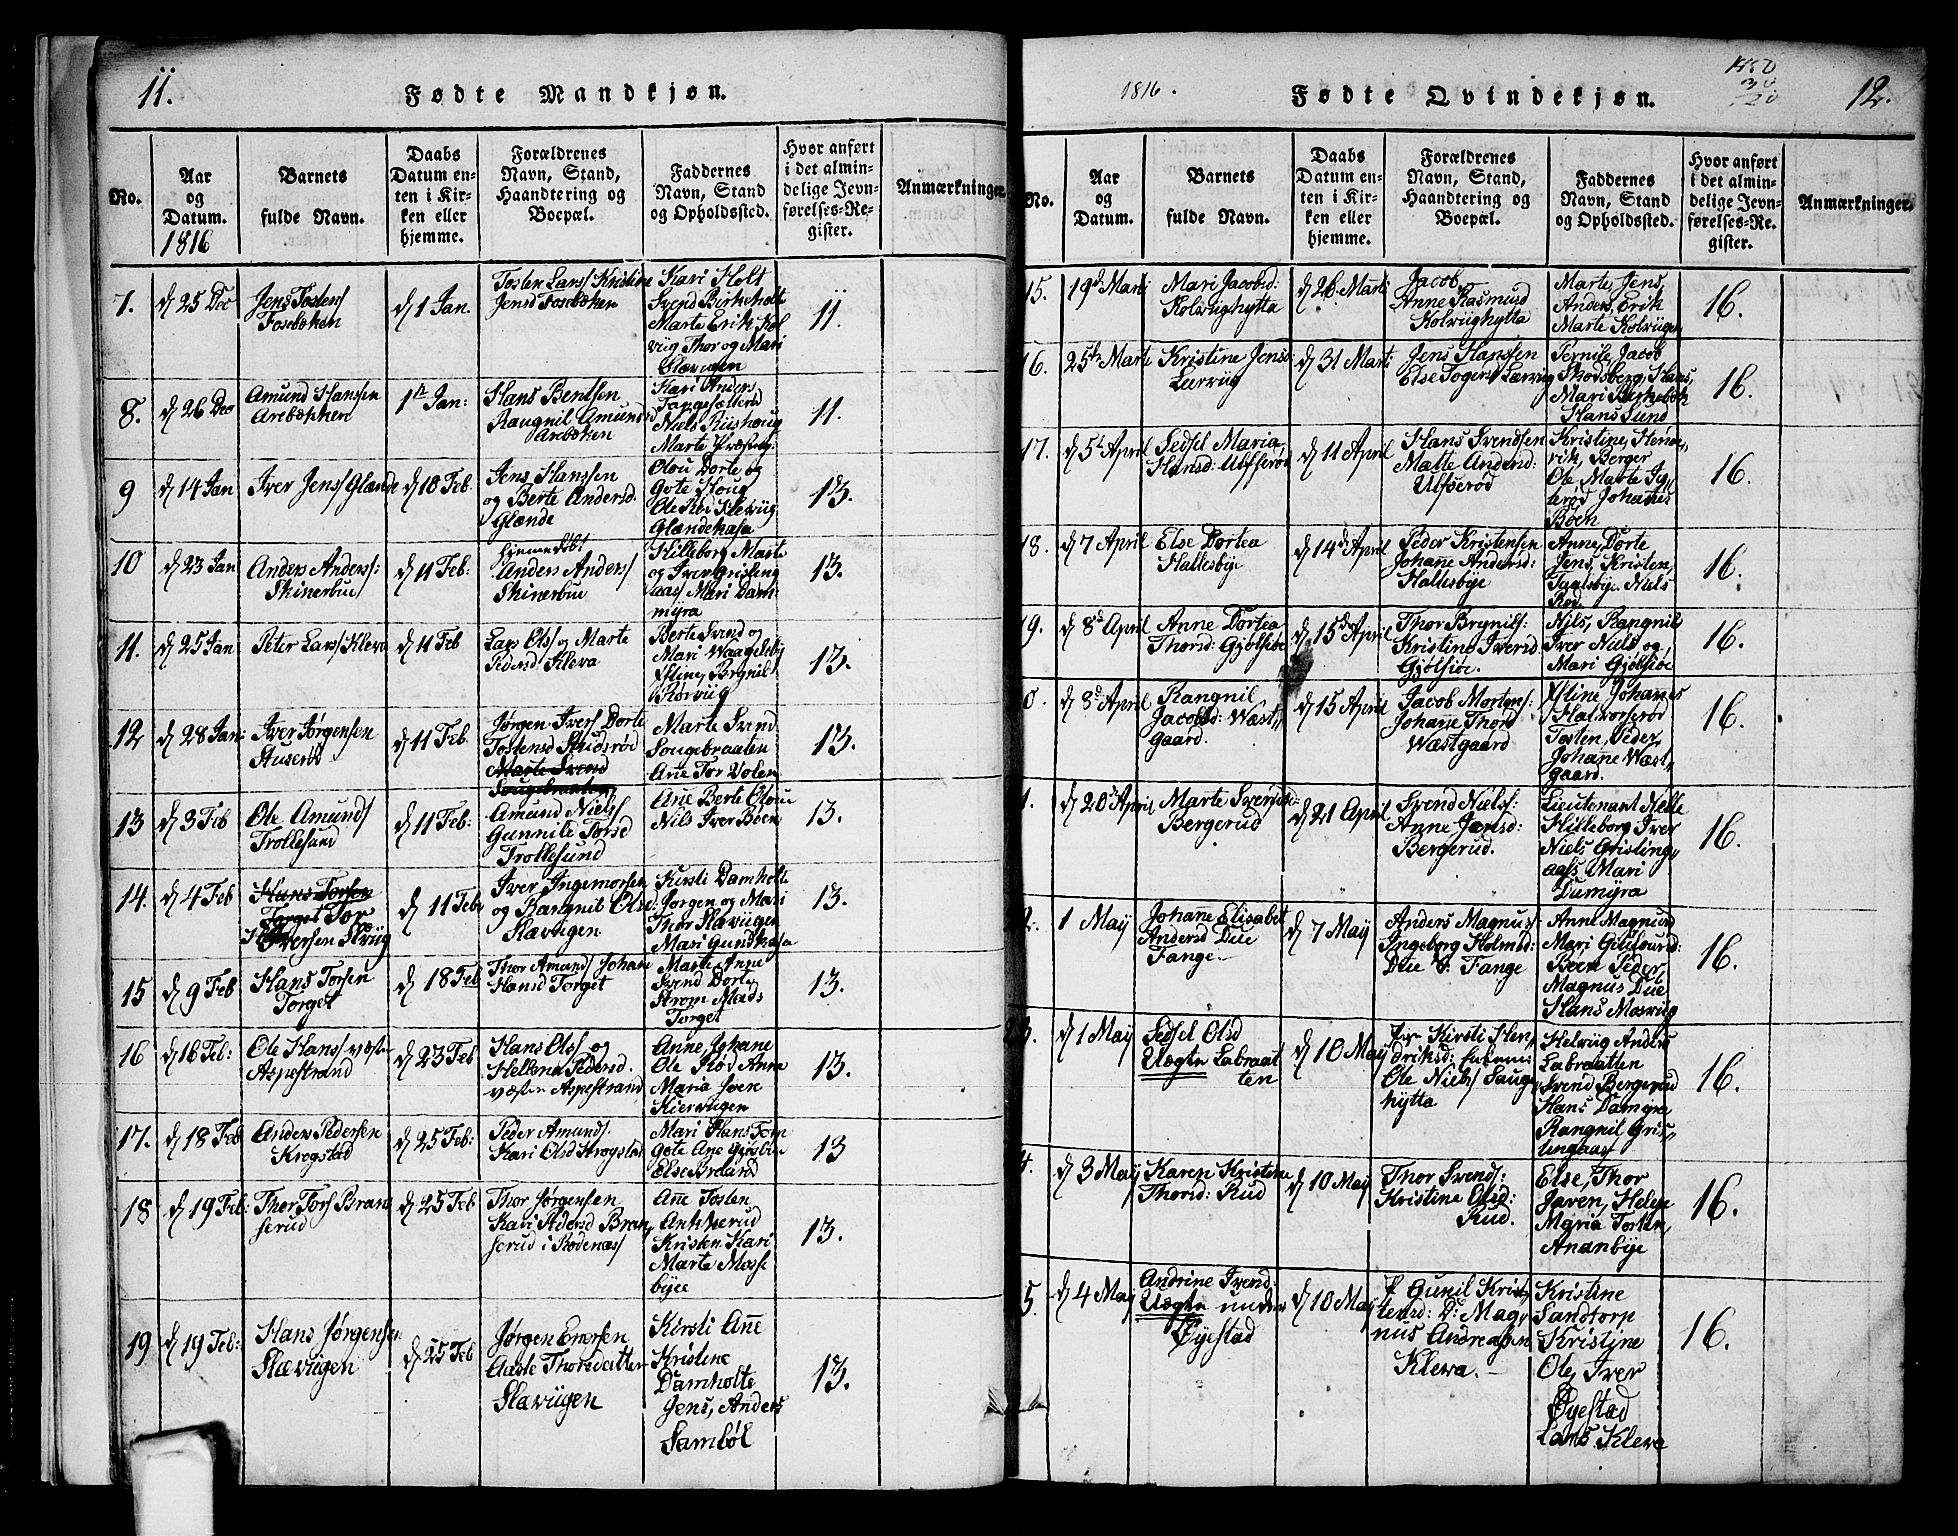 11.
Fødte Mandkjøn.
No.
Aar
og
Datum.
1816
Barnets
fulde Navn.
Daabs
Datum en-
ten i Kir-
ken eller
hjemme.
Forældrenes
Navn, Stand,
Haandtering og
Boepæl.
Faddernes
Navn, Stand
og Opholdssted.
Hvor anført
i det almin-
delige Jevn-
førelses-Re-
gister.
Anmærkninger.
7.
d 25 Dec
Jens Tosten/
Fosebæken
d 1 Jan.
Tosten Lars/ Kristine
Jensd Fosebæken
Kari Holt
Svend Birkeholt
Marte Erik Kol
viig Thor og Mari
Slævigen
11.
8.
d 26 Dec
Amund Hanssen
Arebækken
1 Jan:
Hans Bentsen
Raugnil Amunds
Arbæken
Kari Anders
Niels Riishoug
Marte
11.
9
d 14 Jan
Iver Jens/ Glænde
d 18 Feb
Jens Hanssen
og Berte Andersd.
Glænde
Olou Dorte og
Gote Houg
Ole Røi Klevüg
Glændekasa
13.
10
d 23 Jan
Anders Anders/:
Skinerbüe/
d 11 Feb:
hjemmedøbt
Anders Anders/
Skinerbüe
Hilleborg Marte
og Iver Grisling
aas/ Mari Dam
myra
13.
11.
d 25 Jan
Peter Lars/ Kleva
d 11 Feb
Lars Ols/ og Marte
Pedersd Kleva.
Berte Svend og
Mari Waageleby
Stine, Brynil
Kørviig
13.
12
d 28 Jan:
Iver Jørgensen
Stuserød
d 11 Feb.
Jørgen Ivers/ Dorte
Tostensd Studsrød
Marte Svend
Sougebraaten
Marte Svend
Sougebraaten
Ane Tor Volen
13.
13
d 3 Feb
Ole Amund/
Trollesund
d 11 Feb:
Amund Niels/
Gunnile Torsd
Trollesund
Ane Berte Olou
Nils Iver Bøen
13.
14.
d 4 Feb
Hans Torsen
Torget Tor
Iversen Slæviig
d 11 Feb:
Iver Ingemorsen
og Rangnil Olsd:
Slævigen
Kirsti Damholte
Jørgen og Mari
Thor Slæviigen
Mari Gundkasa
13.
15
d 9 Feb
Hans Torsen
Torget
d 18 Feb
Thor Amund/ Johane
Hansd Torget
Marte Anne
Svend Dorte
Strøm Mads
Torget
13.
16
d 16 Feb:
Ole Hans/ væster
Aspestrand
d 23 Feb
Hans Ols/ og
Hellena Pedersd.
væsten Aspestrand
Anne Johane
Ole Rød Anne
Maria
Kiervügen
13.
17.
d 18 Feb
Anders Pedersen
Krogstad
d 25 Feb:
Peder Amunds/.
Kari Olsd Krogstad
Mari Hans Tom
Gote Ane
Else
13
18
d 19 Feb:
Thor Tors/ Bran
serud
d 25 Feb
Thor Jørgensen
Kari Pedersd Bran
serud i Rødenæs/
Ane Tosten
Ankkerud
Kristen Kari
Marte Mosse
byee
13.
19
d 19 Feb:
Hans Jørgensen
Slævügen
d 25 Feb
Jørgen Enersen
Aaste Thorsdatter
Slævügen
Kirsti Ane
Kristine
Damholte
Jens, Anders
Sambøl
13.
1816.
Fødte Qvindekjøn.
12.
No.
Aar
og
Datum.
Barnets
fulde Navn.
Daabs
Datum en-
ten i Kir-
ken eller
hjemme.
Forældrenes
Navn, Stand,
Haandtering og
Boepæl.
Faddernes
Navn, Stand
og Opholdssted.
Hvor anført
i det almin-
delige Jevn-
førelses-Re-
gister.
Anmærkninger.
15.
19d Marti
Mari Jacobsd:
Kolviighytta
d 26 Marti
Jacob
Anne Rasmusd
Kolviighytta
Marte, Jens,
Anders, Erik
Marte Kolviigen
16.
16.
25de Marte
Kristine Jensd:
Lerviig
d 31 Mart
Jens Hanssen
Else Togersd Lerviig
Pernile, Jacob
Skodsberg, Hans,
Mari Birkebøk
Hans Lund
16.
17.
d 5t April
Sedsel Maria
Hansd: Ulfserød
d 11 April
Hans Svendsen
Malte Andersd:
Ulfserød
Kristine, Henr
rik, Berger
Ole, Marte Ig
lerød Johanes
Bøen
16
18.
d 7 April
Else Dortea
Hallesbije
d 14d April
Peder Kristensen
Johane Andersd:
Hallesbije
Anne, Dorte
Jens, Kristen,
Taalsbije Niels
Rød
16.
19.
d 8d April
Anne Dortea
Thorsd: Gjølsiøe
d 15de April
Thor Brynils/:
Kristine Iversd
Gjølsiøe.
Nils, Rangnil
Iver Niels og
Mari Gjølsiøe
16.
0.
d 8d April
Rangnil
Jacobsd: Wæst
gaard.
d 15 April
Jacob Morten/:
Johane Thord
Wæstgaard
Stine Johanes
Halvorserød
Tosten, Peder,
Johane Wæst
gaard.
16.
1.
d 20de April
Marte Svends:
Bergerud
d 21 April
Svend Niels/:
Anne Jensd:
Bergerud.
Lieutenant Nelle
Hilleborg Iver
Niels Grisling
aas/ Mari
Dumÿra
16.
2.
1 Maÿ
Johane Elisabet
Andersd Düe
Fange.
d 7 Maÿ
Anders Magnus/
Ingeborg Holmsd:
Düe v: Fange
Anne Magnus
Mari
Bøen Peder,
Magnus Düe
Hans Mosviig
16.
3.
d 1 Maÿ
Sedsel Olsd
Uægte Labraat
ten
d 10 Maÿ
Kirsti Hen
driksd:
Ole Niels/ Saug
hÿtta
Helvüg Anders
Labraatten
Svend Bergerud
Hans Damÿra
Rangnil Gris
lingaas/
16.
4.
d 3 Maÿ
Karen Kristine
Thorsd: Rud
d 10 Maÿ
Thor Svend/:
Kristine Olsd:
Rud.
Else, Thor
Jaren, Helene
Maria Tosten,
Ananbÿe
16.
5.
d 4 Maÿ
Andrine Svend:
Uægte under
Øÿestad
d 10 Maÿ
Gunil Kris
tensd: D: Mag
nus Andreassen
Kleva.
Kristine
Sandtorp
Kristine
Ole, Iver
Øÿestad
Lars Kleva
16.